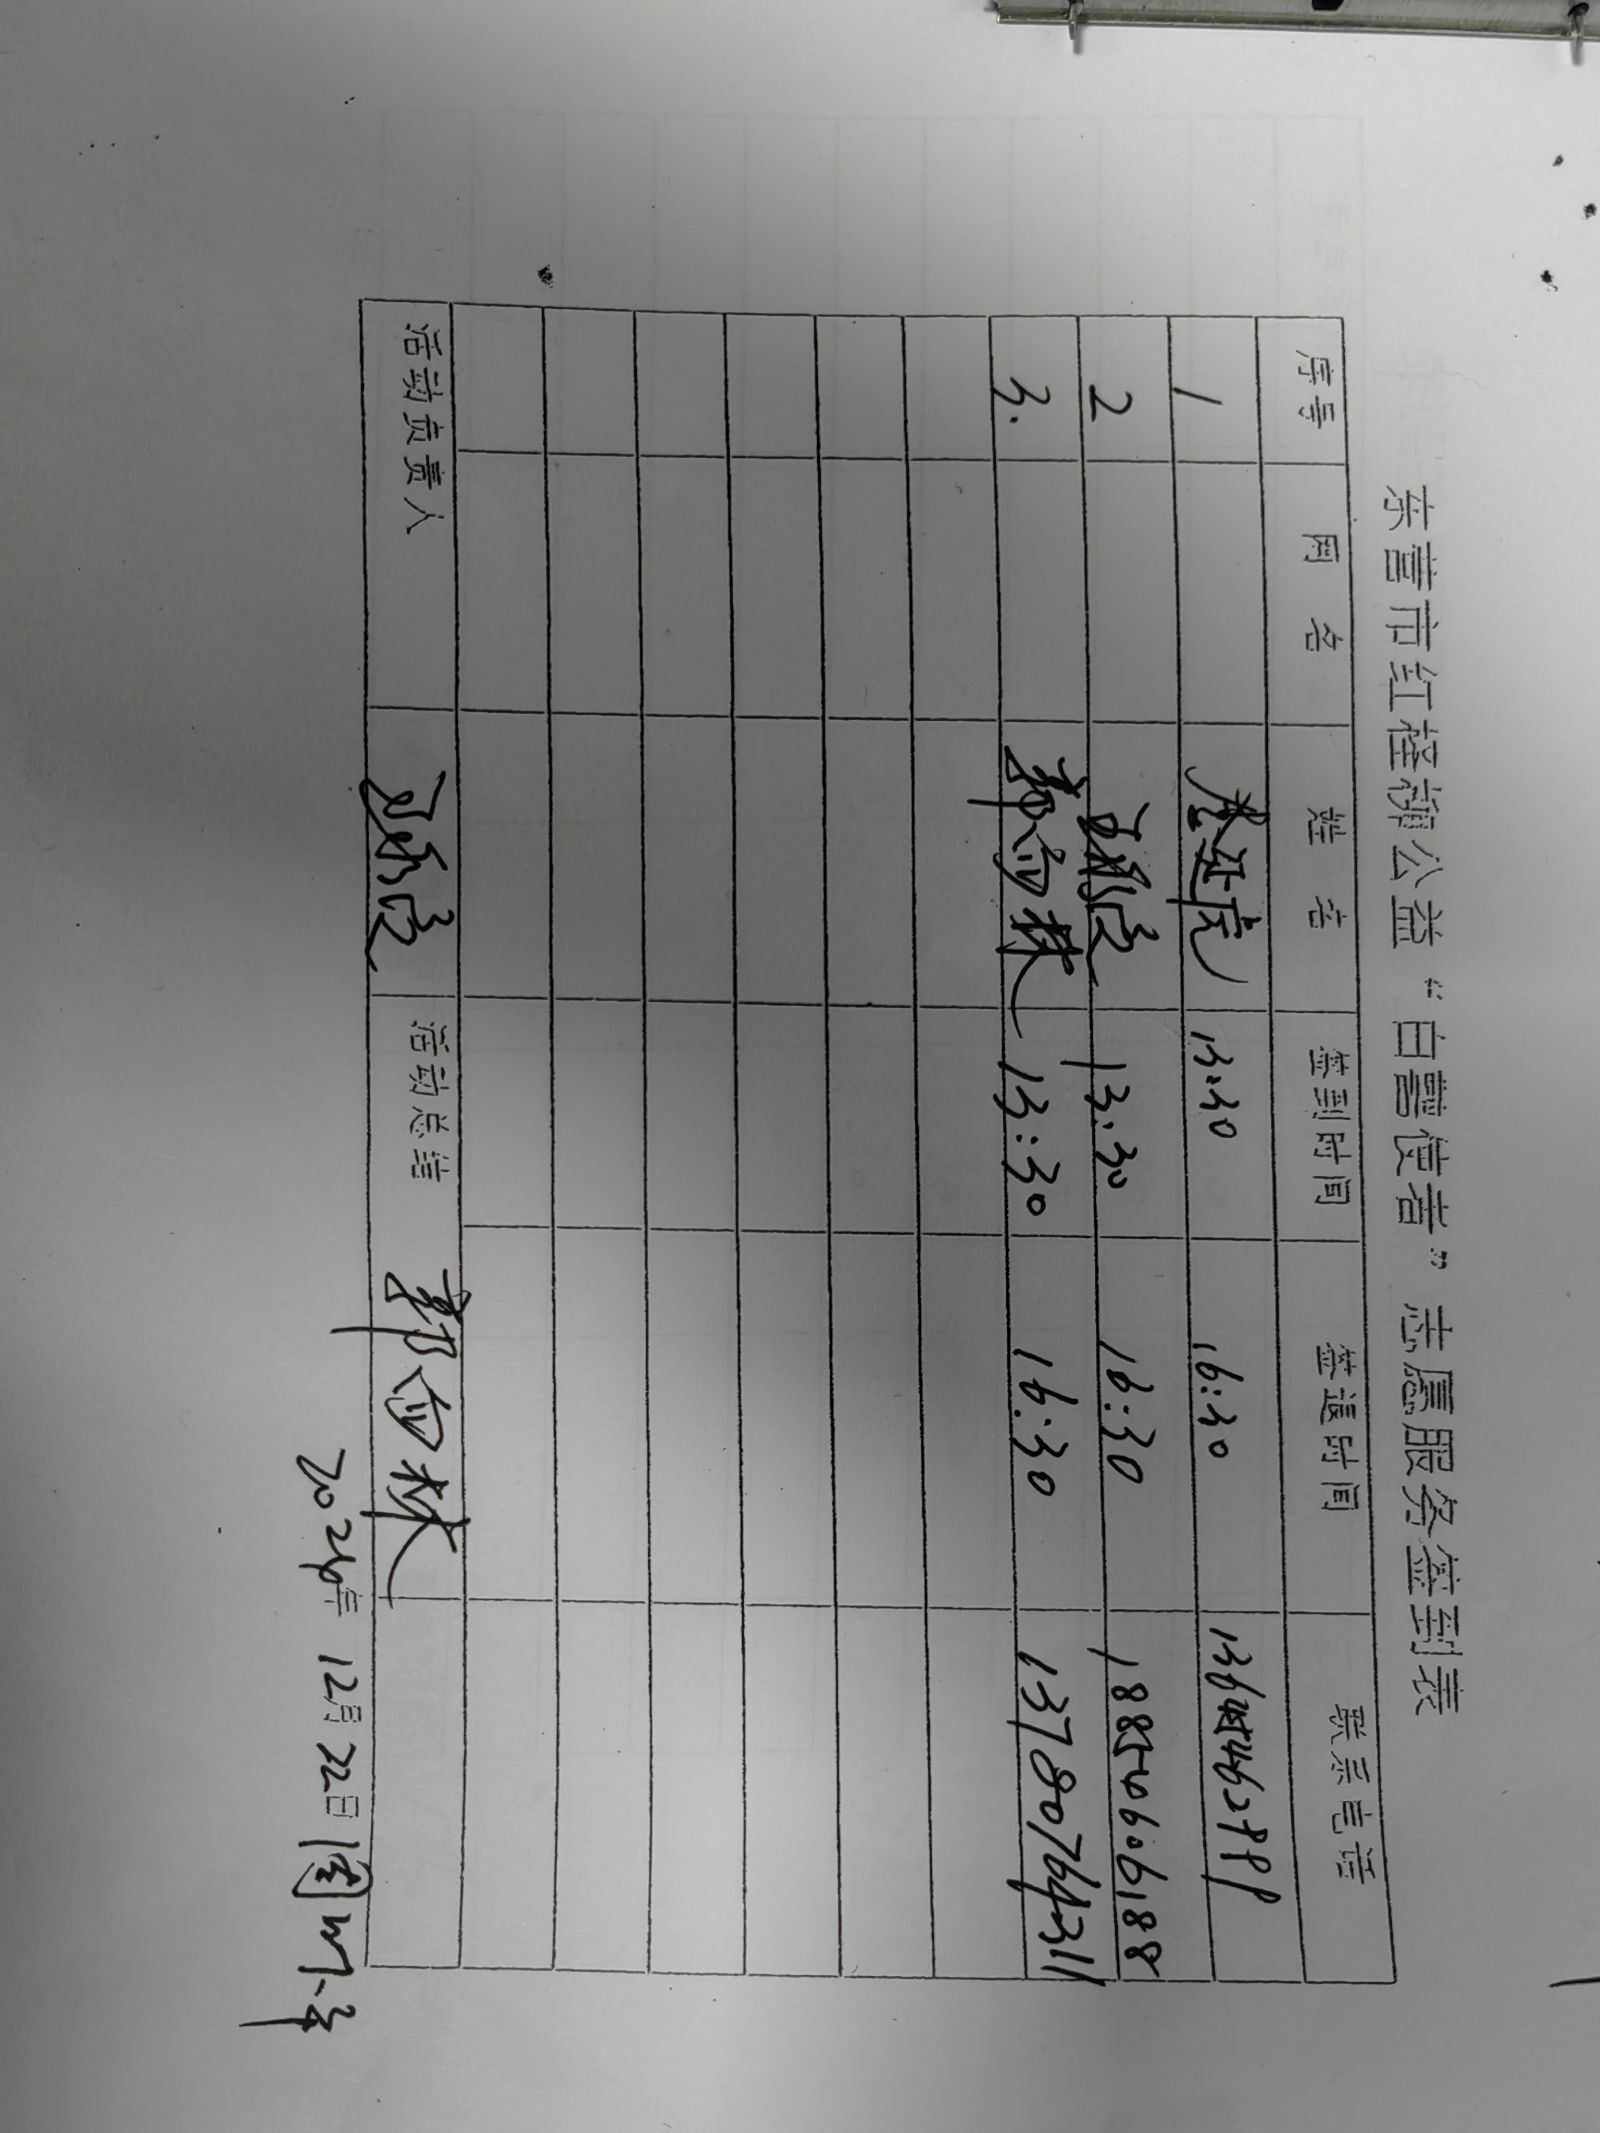 东营市红柽柳公益“白鹭使者”志愿服务签到表
序号 网名 姓名 签到时间 签退时间 联系电话
1 13:30 16:30
2 13:30 16:30 18854606188
3. 郭向林 13:30 16:30 13780764311
活动责任人 活动总结 郭向林
2024年12月22日